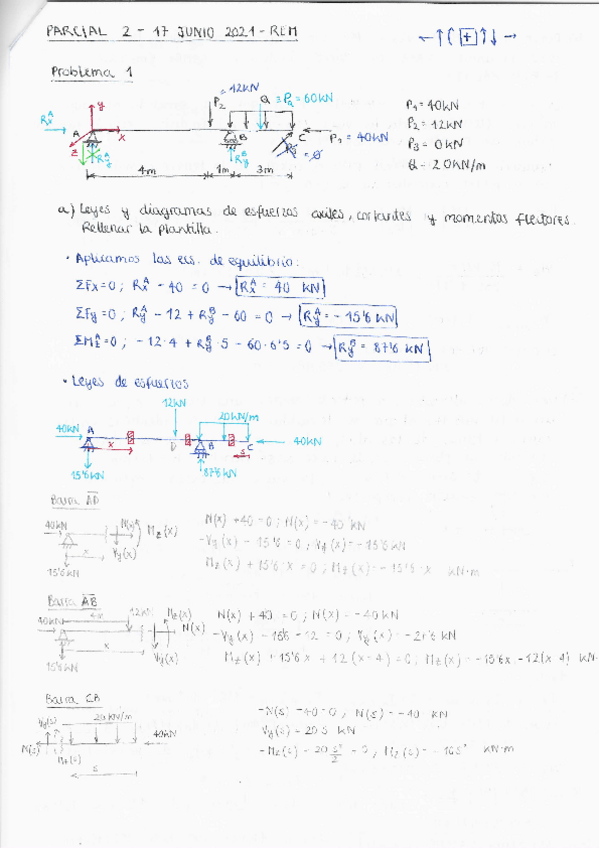 PARCIAL 2 - 17 JUNIO 2021 - REM
← ↑ ( + ↑ ↓ →
Problema 1
= 12KN
P₂
Q ≡ P_Q = 60KN
y
Rₓᴬ
A
x
z
R_yᴬ
B
R_yᴮ
C
P₁ = 40KN
P₃ = 0
4m
1m
3m
P₁ = 40KN
P₂ = 12KN
P₃ = 0KN
Q = 20KN/m
a) Leyes y diagramas de esfuerzos axiles, cortantes y momentos flectores.
Rellenar la plantilla.
• Aplicamos las ecs. de equilibrio:
ΣFx=0; Rₓᴬ - 40 = 0 → Rₓᴬ = 40 KN
ΣFy=0; R_yᴬ - 12 + R_yᴮ - 60 = 0 → R_yᴬ = - 15'6 KN
ΣM_zᴬ=0; -12·4 + R_yᴮ·5 - 60·6'5 = 0 → R_yᴮ = 87'6 KN
• Leyes de esfuerzos
12KN
20KN/m
40KN
A
x
D
B
C
s
40KN
15'6KN
87'6KN
Barra AD
40KN
N(x)
M_z(x)
V_y(x)
x
15'6KN
N(x) + 40 = 0; N(x) = -40 KN
-V_y(x) - 15'6 = 0; V_y(x) = -15'6 KN
M_z(x) + 15'6·x = 0; M_z(x) = -15'6·x KN·m
Barra AB
4m
12KN
M_z(x)
40KN
N(x)
x
V_y(x)
15'6KN
N(x) + 40 = 0; N(x) = -40KN
-V_y(x) - 15'6 - 12 = 0; V_y(x) = -27'6 KN
M_z(x) + 15'6x + 12(x-4) = 0; M_z(x) = -15'6x - 12(x-4) KN·m
Barra CB
V_y(s)
20KN/m
40KN
N(s)
M_z(s)
s
-N(s) - 40 = 0; N(s) = -40 KN
V_y(s) = 20s KN
-M_z(s) - 20 s²/2 = 0; M_z(s) = -10s² KN·m